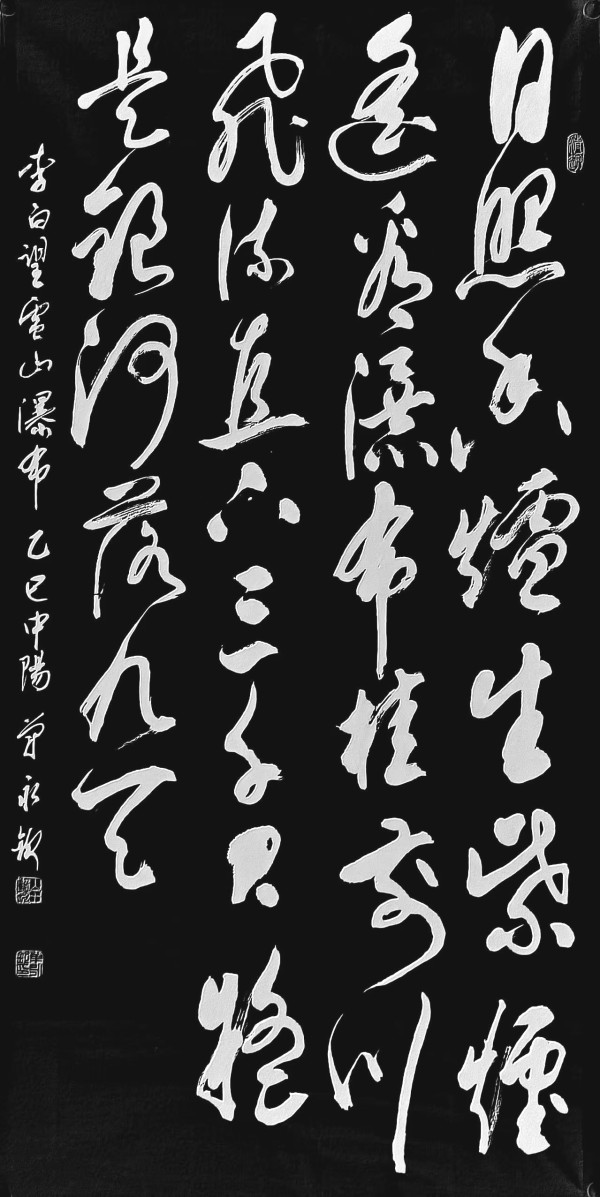 日照香爐生紫煙
遙看瀑布挂前川
飛流直下三千尺疑
是銀河落九天
李白望廬山瀑布 乙巳中陽 永